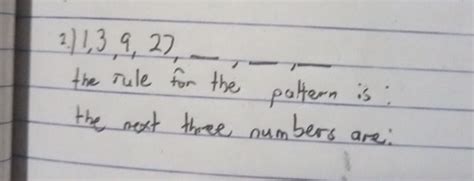 2.) 1, 3, 9, 27, __, __, __
the rule for the pattern is:
the next three numbers are: